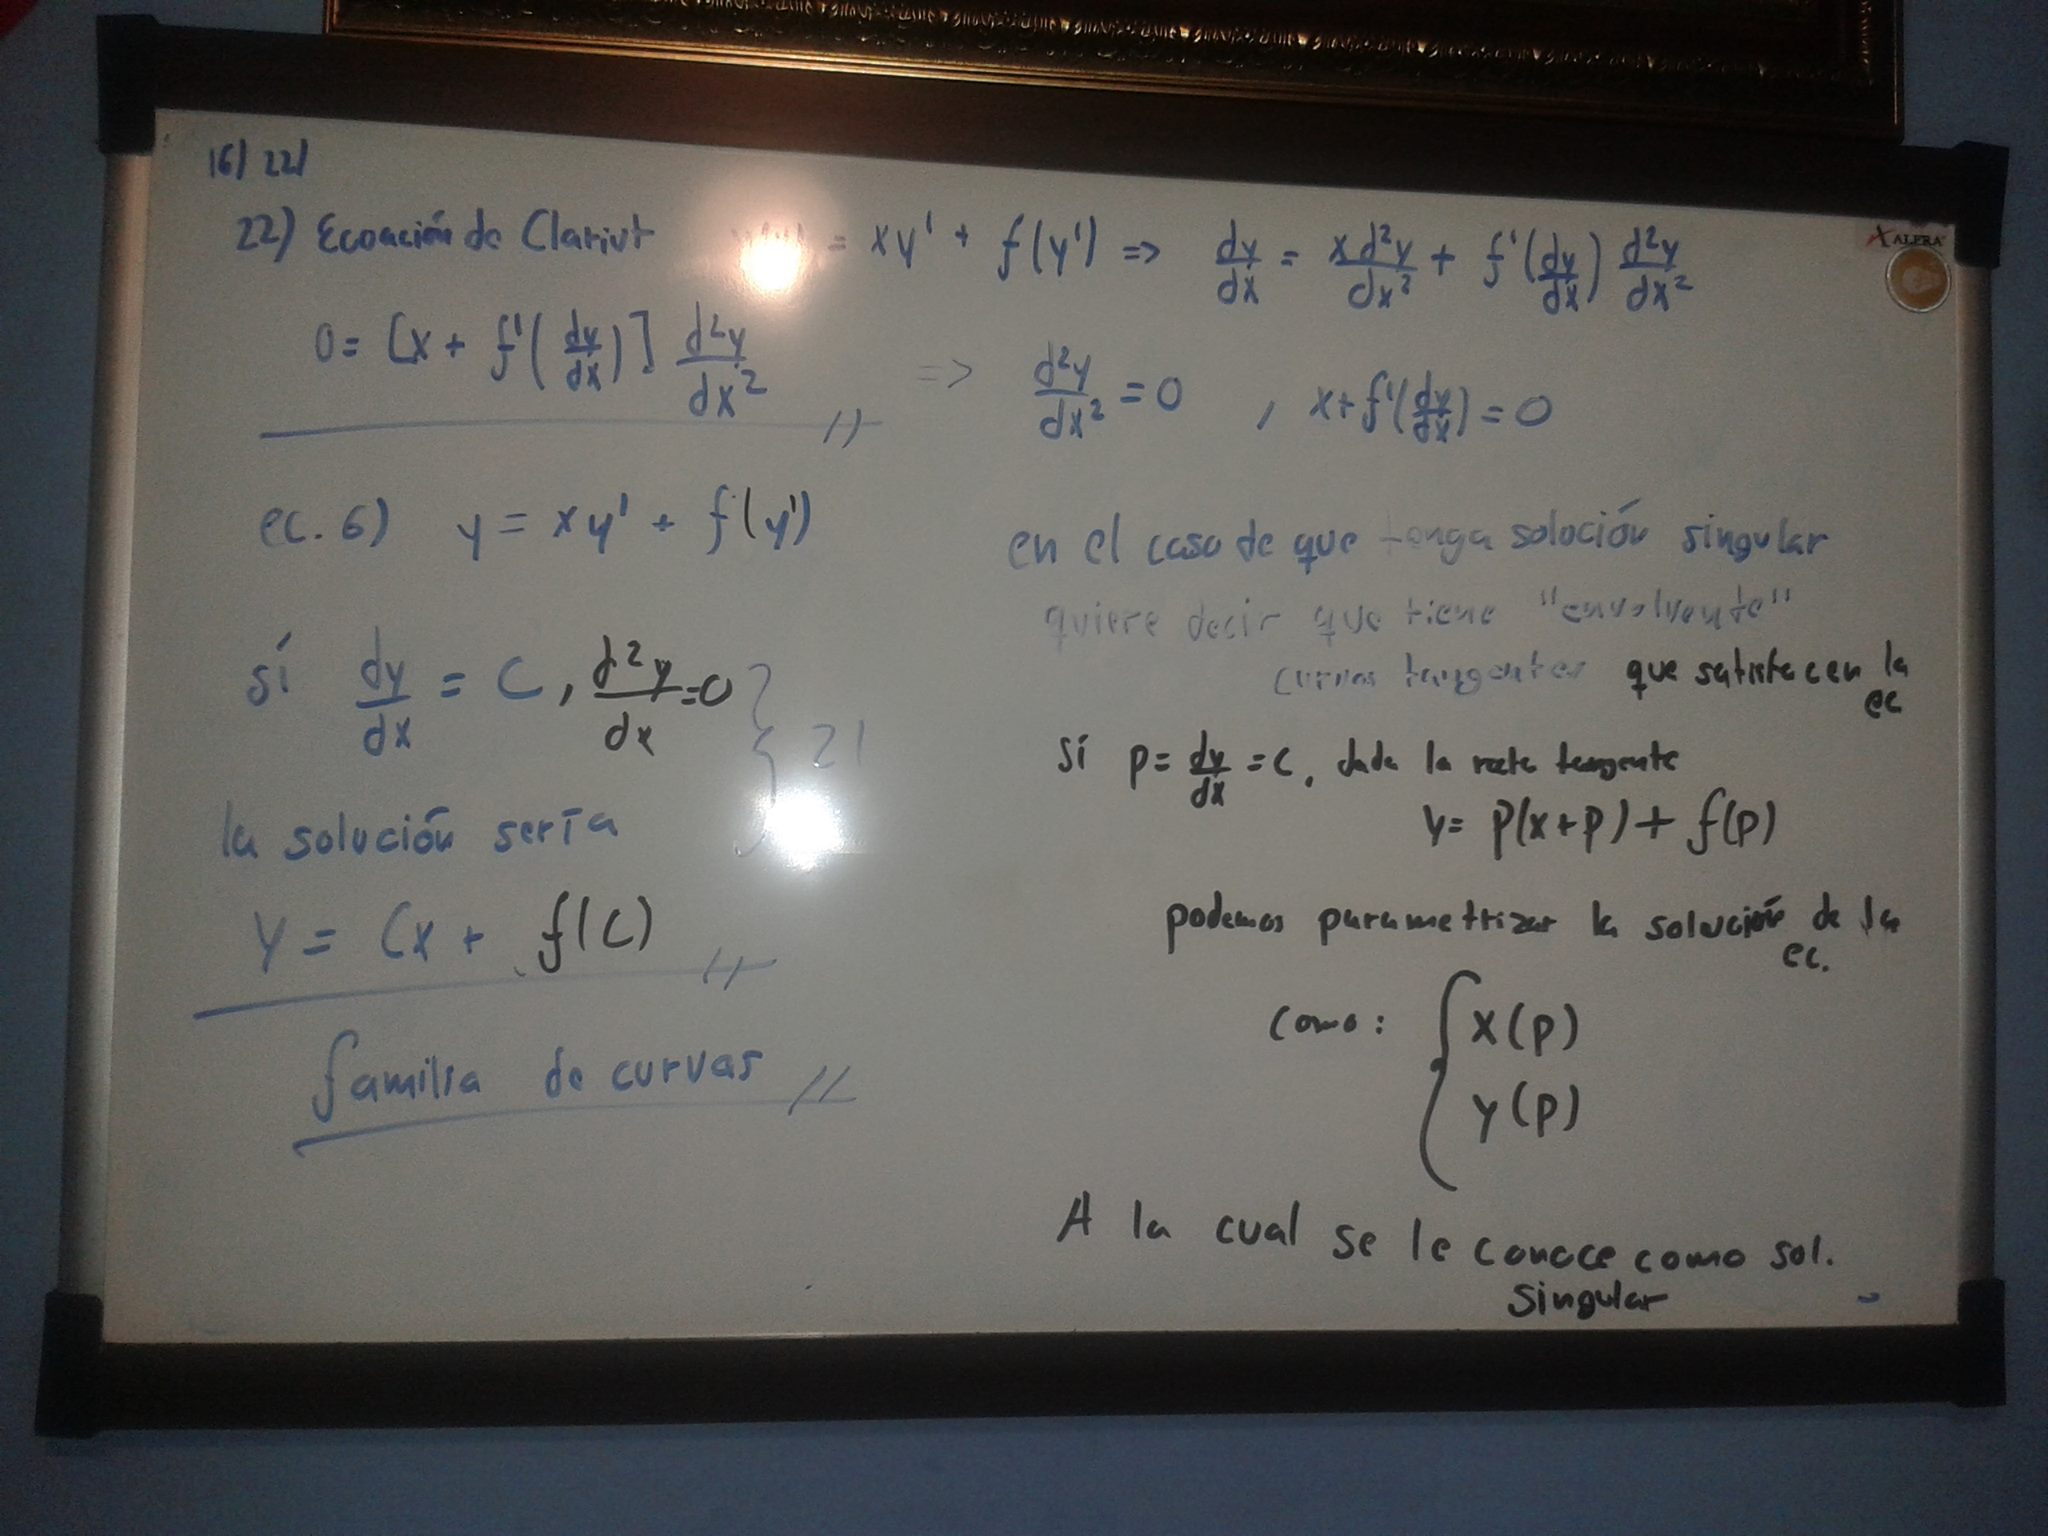 16) 22)
22) Ecoación de Clariut = xy' + f(y') => dy/dx = x d²y/dx² + f'(dy/dx) d²y/dx²
0 = [x + f'(dy/dx)] d²y/dx² => d²y/dx² = 0 , x + f'(dy/dx) = 0
ec. 6) y = xy' + f(y')
sí dy/dx = C, d²y/dx = 0 } 21
la solución sería
Y = Cx + f(C)
familia de curvas
en el caso de que tenga soloción singular
quiere decir que tiene "envolvente"
curvas tangentes que satisfacen la
ec
Sí p = dy/dx = c, dada la recta tangente
y = p(x+p) + f(p)
podemos parametrizar la solución de la
ec.
como: { x(p)
y(p)
A la cual se le conoce como sol.
Singular
ALFRA